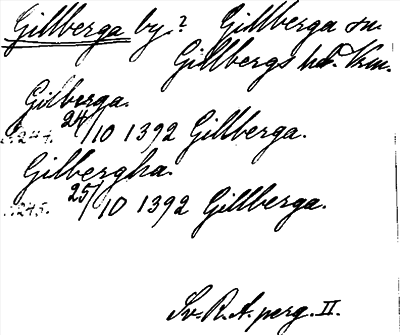 Gillberga by? Gillberga sn.
Gillbergs hd. Vrm.
Gilberga.
24/10 1392 Gillberga.
Gilbergha.
25/10 1392 Gillberga.
Sv. R. A. perg. II.